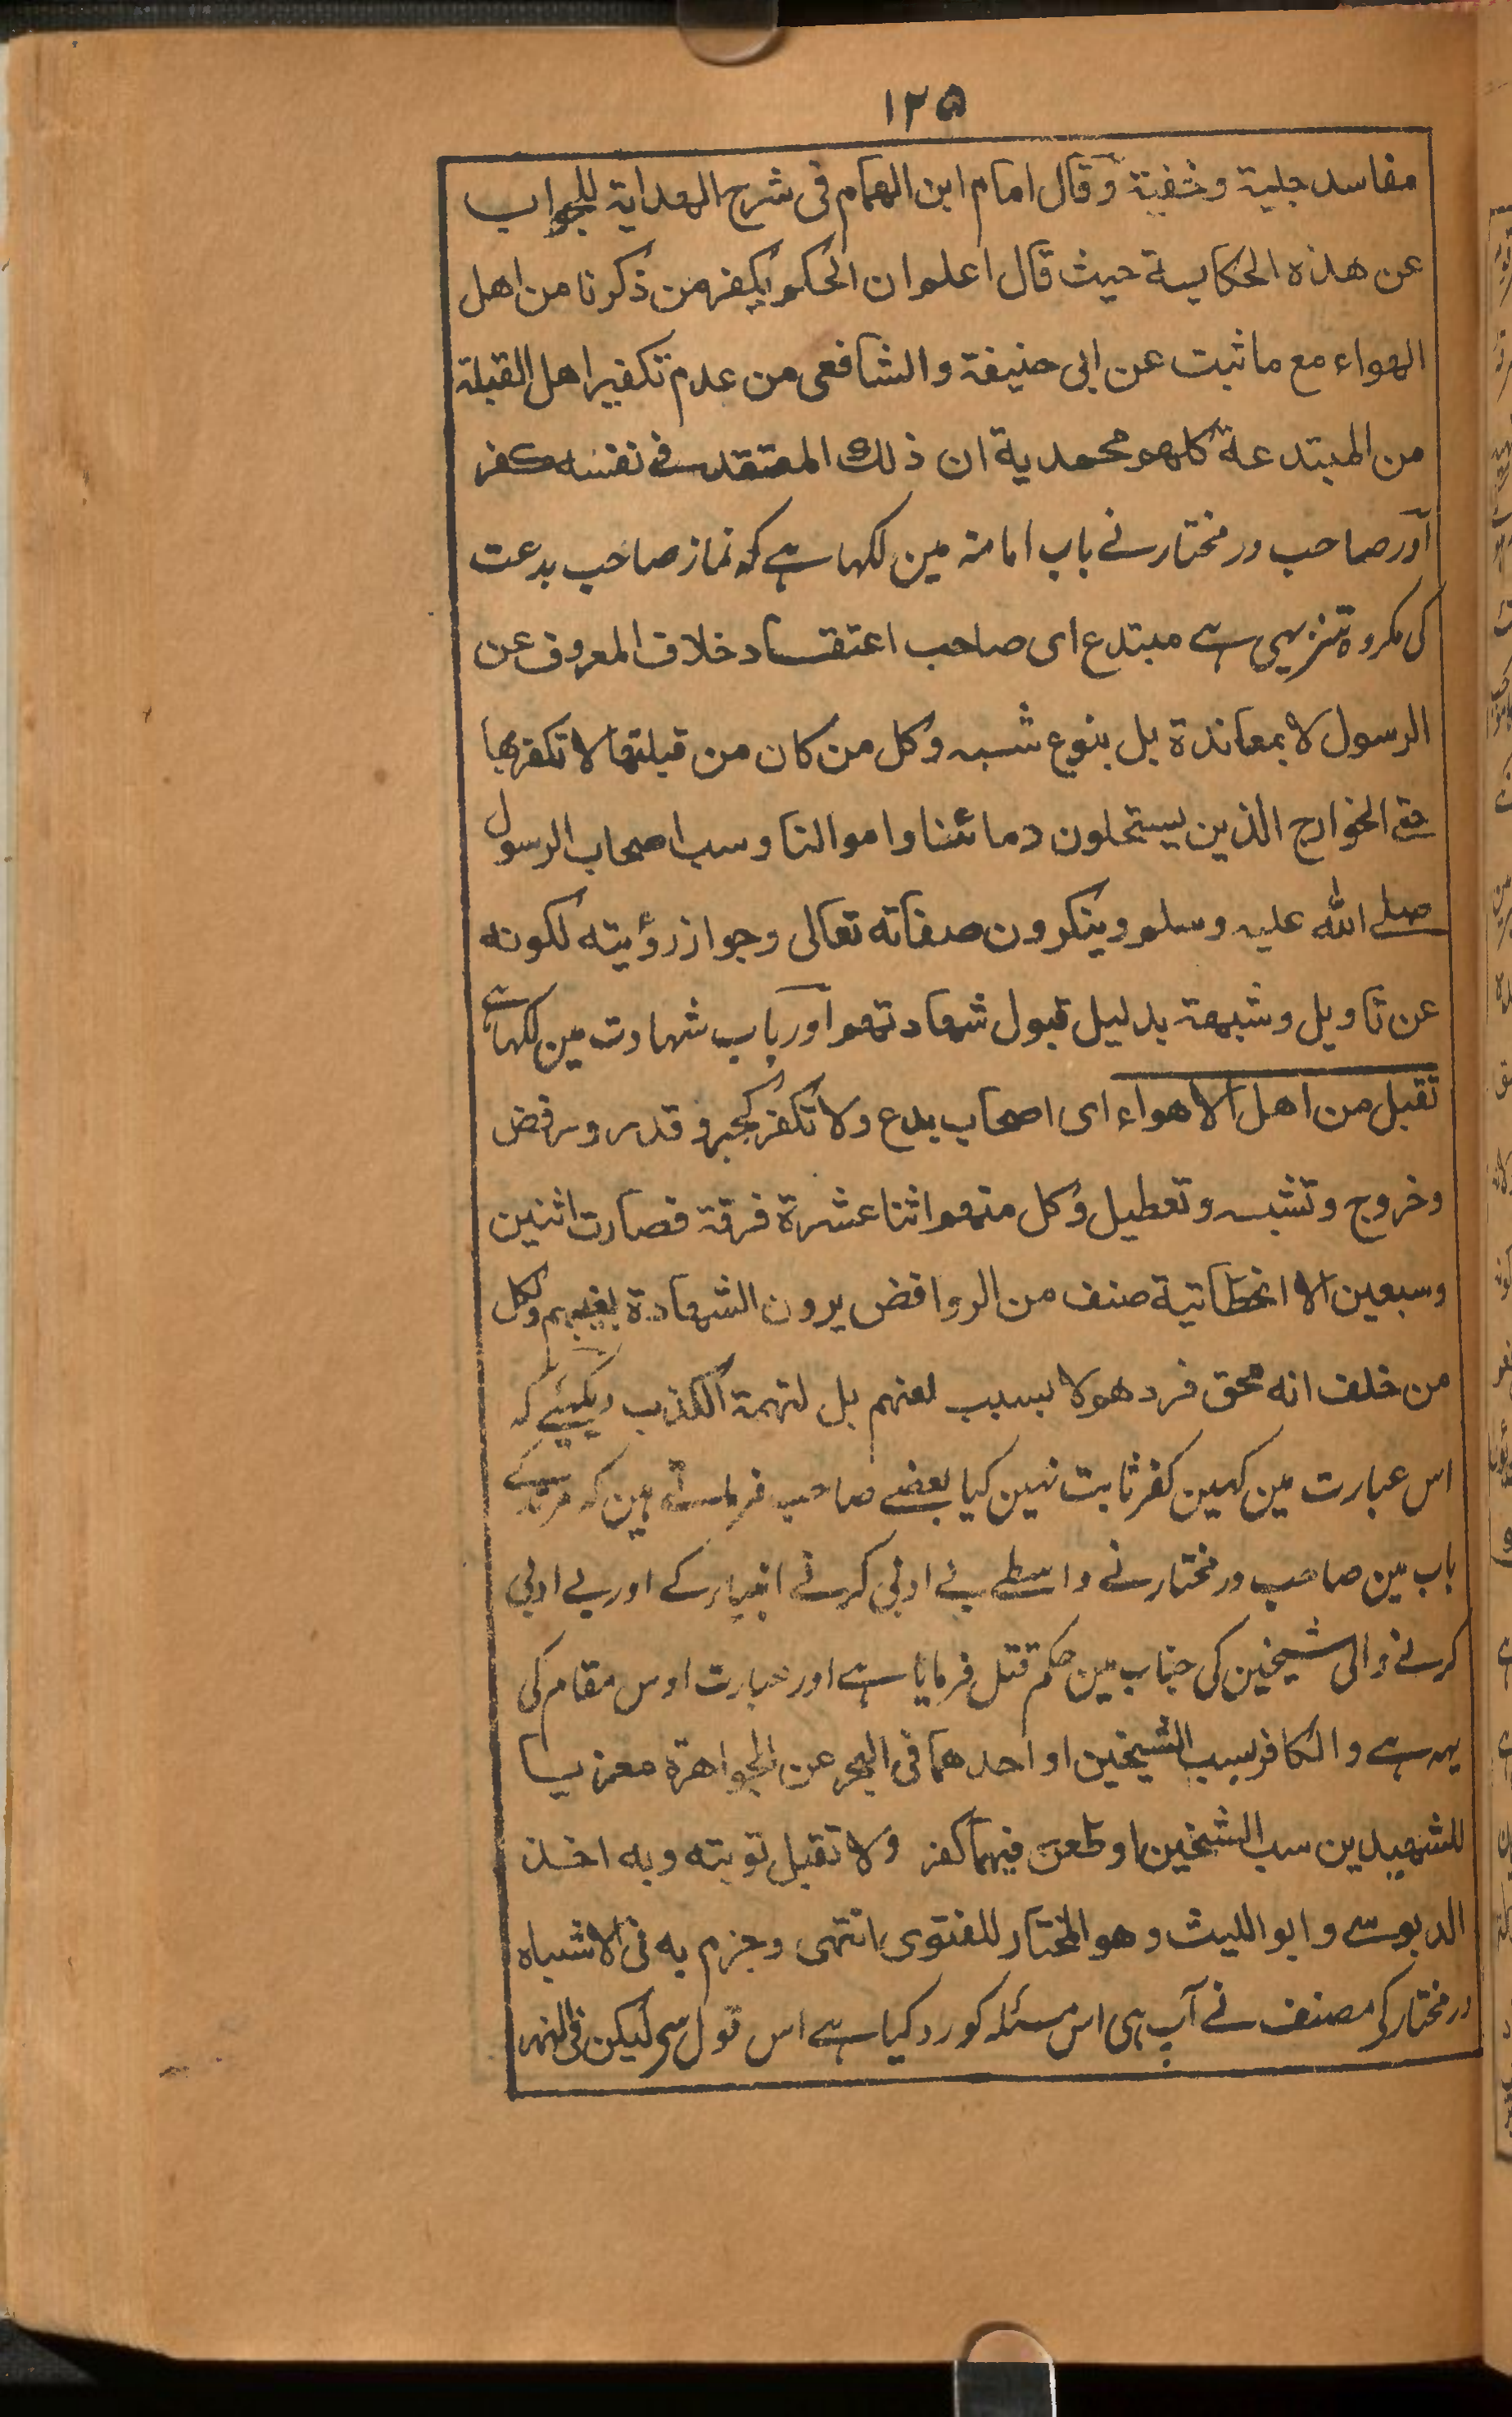 ۱۲۵
مفاسد جلية وخفية وقال امام ابن الهمام فى شرح الهداية للجواب
عن هذه الحكاية حيث قال اعلم ان الحكم بكفر من ذكرنا من اهل
الهواء مع ما ثبت عن ابى حنيفة والشافعى من عدم تكفير اهل القبلة
من المبتدعة كلهم محمدية ان ذلك المعتقد فى نفسه كفر
اور صاحب در مختار نے باب امامۃ مین لکہا ہے کہ نماز صاحب بدعت
کی مکروہ تنزیہی ہے مبتدع ای صاحب اعتقاد خلاف المعروف عن
الرسول لا بمعاندة بل بنوع شبه وكل من كان من قبلتها لا تكفر بها
حتے الخوارج الذين يستحلون دمائنا واموالنا وسب اصحاب الرسول
صلے الله عليه وسلم وينكرون صفاته تعالى وجواز رؤيته لكونه
عن تاويل وشبهة بدليل قبول شهادتهم اور باب شہادت مین لکہا ہے
تقبل من اهل الاهواء اى اصحاب بدع ولا تكفر كجبر وقدر ورفض
وخروج وتشبه وتعطيل وكل منهم اثنا عشرة فرقة فصارت اثنين
وسبعين الا الخطابية صنف من الروافض يرون الشهادة لغيبهم ولكل
من خلف انه محق فرد هولا بسبب لعنهم بل لتهمة الكذب دیکہئے کہ
اس عبارت مین کہین کفر ثابت نہین کیا بعضے صاحب فرماتے ہین کہ مرتد کے
باب مین صاحب در مختار نے واسطے بے ادبی کرنے انبیار کے اور بے ادبی
کرنے والی شیخین کی جناب مین حکم قتل فرمایا ہے اور عبارت اوس مقام کی
یہہ ہے والكافر بسب الشيخين او احدهما فى البحر عن الجواهرة معزيا
للشهيدين سب الشيخين او طعن فيهما كفر ولا تقبل توبته وبه اخذ
الدبوسے وابو الليث وهو المختار للفتوى انتهى وجزم به فى الاشباه
در مختار کی مصنف نے آپ ہی اس مسئلہ کو رد کیا ہے اس قول سی لیکن فى النهر